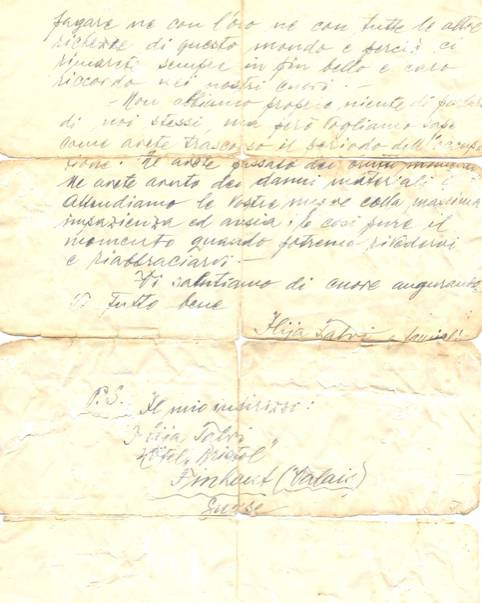 pagare ne con l'oro ne con tutte le altre
richezze di questo mondo e perciò ci
rimarete sempre in fin bello e caro
riccordo nei nostri cuori. —
— Non abbiamo propio niente di parlare
di noi stessi, ma però vogliamo sape
come avete trascorso il periodo dell'occupa
zione. Ne avete passato dei brutti momenti
Ne avete avuto dei danni materiali?
Attendiamo le Vostre nuove colla massima
impazienza ed ansia, e così pure il
momento quando potremo rivedervi
e riabbraciarvi —
Vi salutiamo di cuore augurando
Vi tutto bene
Ilija Talvi e famiglia
P.S. Il mio indirizzo:
Ilija Talvi
Hôtel „Bristol"
Finhaut (Valais)
Suisse